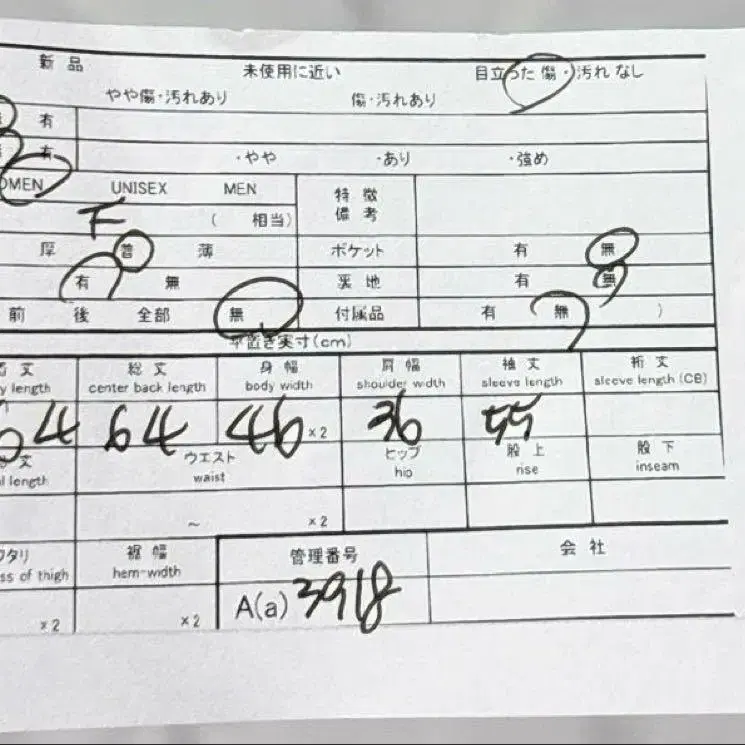 新品 未使用に近い 目立った傷・汚れなし
やや傷・汚れあり 傷・汚れあり
有
有 ・やや ・あり ・強め
OMEN UNISEX MEN 特徴
備考
( 相当)
厚 普 薄 ポケット 有 無
有 無 裏地 有 無
前 後 全部 無 付属品 有 無 )
平置き実寸(cm)
丈 総丈 身幅 肩幅 袖丈 裄丈
y length center back length body width shoulder width sleeve length sleeve length (CB)
64 64 46 ×2 36 55
丈 ウエスト ヒップ 股上 股下
l length waist hip rise inseam
~ ×2
ワタリ 裾幅 管理番号 会社
ss of thigh hem-width
×2 ×2 A(a) 3918